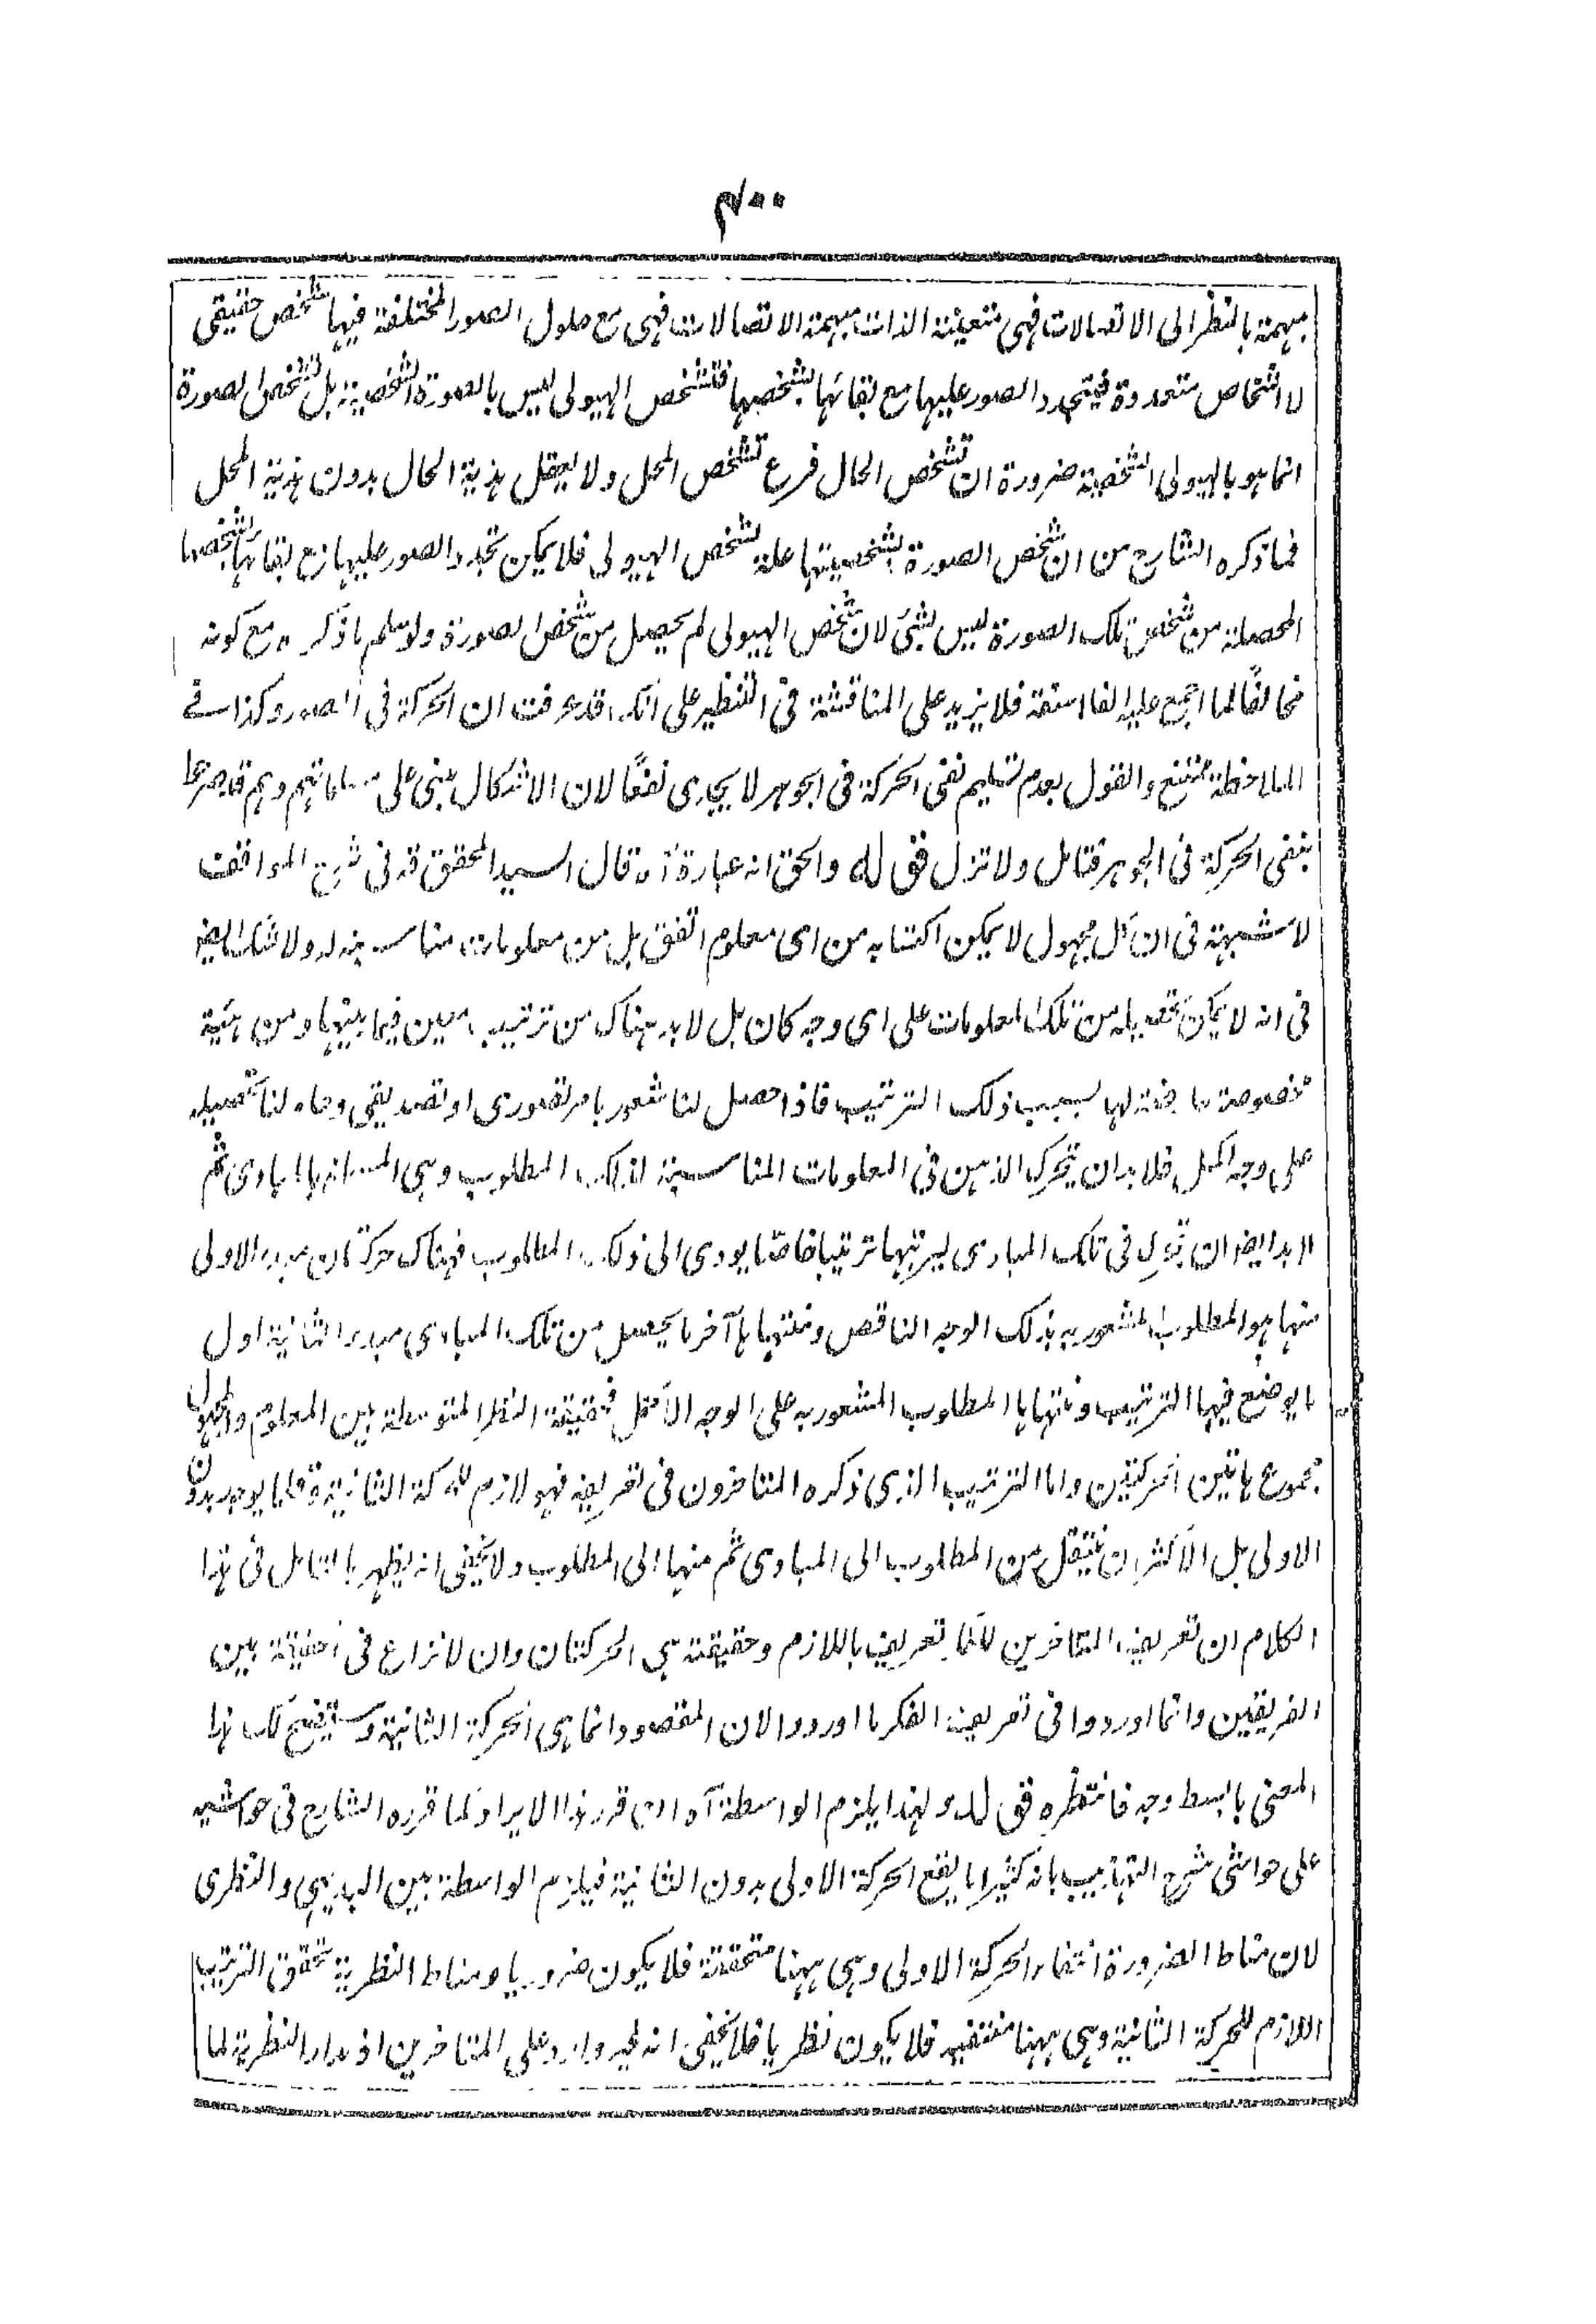 ٤٠٠
مبهمة بالنظر الى الاتصالات فهى متعينة الذات مبهمة الاتصالات فهى مع حلول الصور المختلفة فيها شخص حقيقى
لا اشخاص متعددة فيتجدد الصور عليها مع بقائها بشخصها فتشخص الهيولى ليس بالصورة الشخصية بل تشخص الصورة
انما هو بالهيولى الشخصية ضرورة ان تشخص الحال فرع تشخص المحل ولا يعقل هذية الحال بدون هذية المحل
فما ذكره الشارح من ان تشخص الصورة بشخصيتها علة لشخص الهيولى فلا يمكن تجدد الصور عليها مع بقائها بشخصها
المحصلة من تشخص تلك الصورة ليس بشئ لان تشخص الهيولى لم يحصل من تشخص الصورة ولو سلم ما ذكره مع كونه
مخالفًا لما اجمع عليه الفلاسفة فلا يزيد على المناقشة فى التنظير على انك قد عرفت ان الحركة فى الصور وكذا فى
الملاحظة ممتنع والقول بعدم تسليم نفى الحركة فى الجوهر لا يجدى نفعًا لان الاشكال مبنى على مسلماتهم وهم قاطبة
بنفى الحركة فى الجوهر فتامل ولا تزل قوله والحق انه عبارة آه قال السيد المحقق قه فى شرح المواقف
لا شبهة فى ان كل مجهول لا يمكن اكتسابه من اى معلوم اتفق بل من معلومات مناسبة له ولا شك ايضا
فى انه لا يمكن تحصيله من تلك المعلومات على اى وجه كان بل لا بد هناك من ترتيب معين فيما بينها ومن هيئة
مخصوصة عارضة لها بسبب ذلك الترتيب فاذا حصل لنا شعور بامر تصورى او تصديقى وحاولنا تحصيله
على وجه اكمل فلا بد ان يتحرك الذهن فى المعلومات المناسبة لذلك المطلوب وهى المسماة بالمبادى ثم
لا بد ايضا ان يتحرك فى تلك المبادى ليرتبها ترتيبا خاصا يودى الى ذلك المطلوب فهناك حركتان مبدء الاولى
منها هو المطلوب المشعور به بذلك الوجه الناقص ومنتهاها آخر ما يحصل من تلك المبادى ومبدء الثانية اول
ما يوضع فيها الترتيب ومنتهاها المطلوب المشعور به على الوجه الاكمل فحقيقة النظر المتوسطة بين المعلوم والمجهول
مجموع هاتين الحركتين واما الترتيب الذى ذكره المتاخرون فى تعريفه فهو لازم للحركة الثانية وقلما يوجد بدون
الاولى بل الاكثر ان ينتقل من المطلوب الى المبادى ثم منها الى المطلوب ولا يخفى انه يظهر بالتامل فى هذا
الكلام ان تعريف المتاخرين انما تعريف باللازم وحقيقته هى الحركتان وان لا نزاع فى الحقيقة بين
الفريقين وانما اوردوا فى تعريف الفكر ما اوردوا لان المقصود انما هى الحركة الثانية وستيضح لك هذا
المعنى بابسط وجه فانتظره قوله ولهذا يلزم الواسطة آه ان قرر هذا الايراد كما قرره الشارح فى حواشيه
على حواشى شرح التهذيب بانه كثيرا ما يقع الحركة الاولى بدون الثانية فيلزم الواسطة بين البديهى والنظرى
لان مناط الضرورة انتفاء الحركة الاولى وهى ههنا متحققة فلا يكون ضروريا ومناط النظرية تحقق الترتيب
اللازم للحركة الثانية وهى ههنا منتفية فلا يكون نظريا فلا يخفى انه غير وارد على المتاخرين اذ مدار النظرية لما